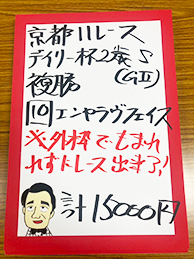 京都11レース
デイリー杯2歳S
(GII)
複勝
10 エンヤラヴフェイス
※外枠でもまれ
れずレース出来る!
計15000円